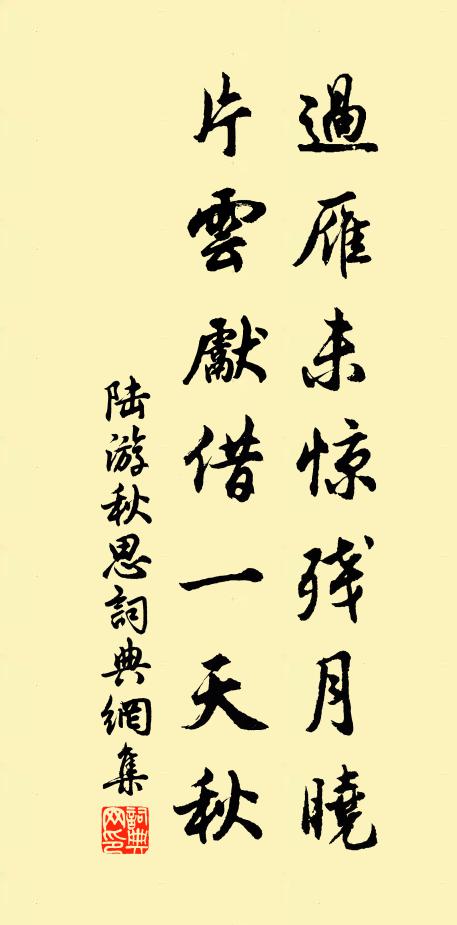 過雁未惊残月曉
片雲獻借一天秋
陆游秋思詞典網集
詞典网印